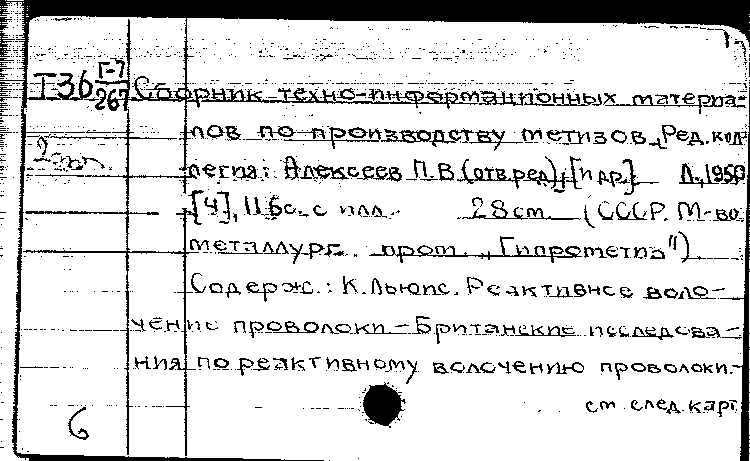 Т36 Г-7/267 Сборник техно-информационных материа-
лов по производству метизов. (Ред. кол-
2 экз. легия: Алексеев П.В. (отв.ред), [и др.]. Л., 1950
[4], 116с. с илл. 28см. (СССР. М-во
металлург. пром. „Гипрометиз").
Содерж.: К. Льюис. Реактивное воло-
чение проволоки – Британские исследова-
ния по реактивному волочению проволоки.-
см след. карт
6